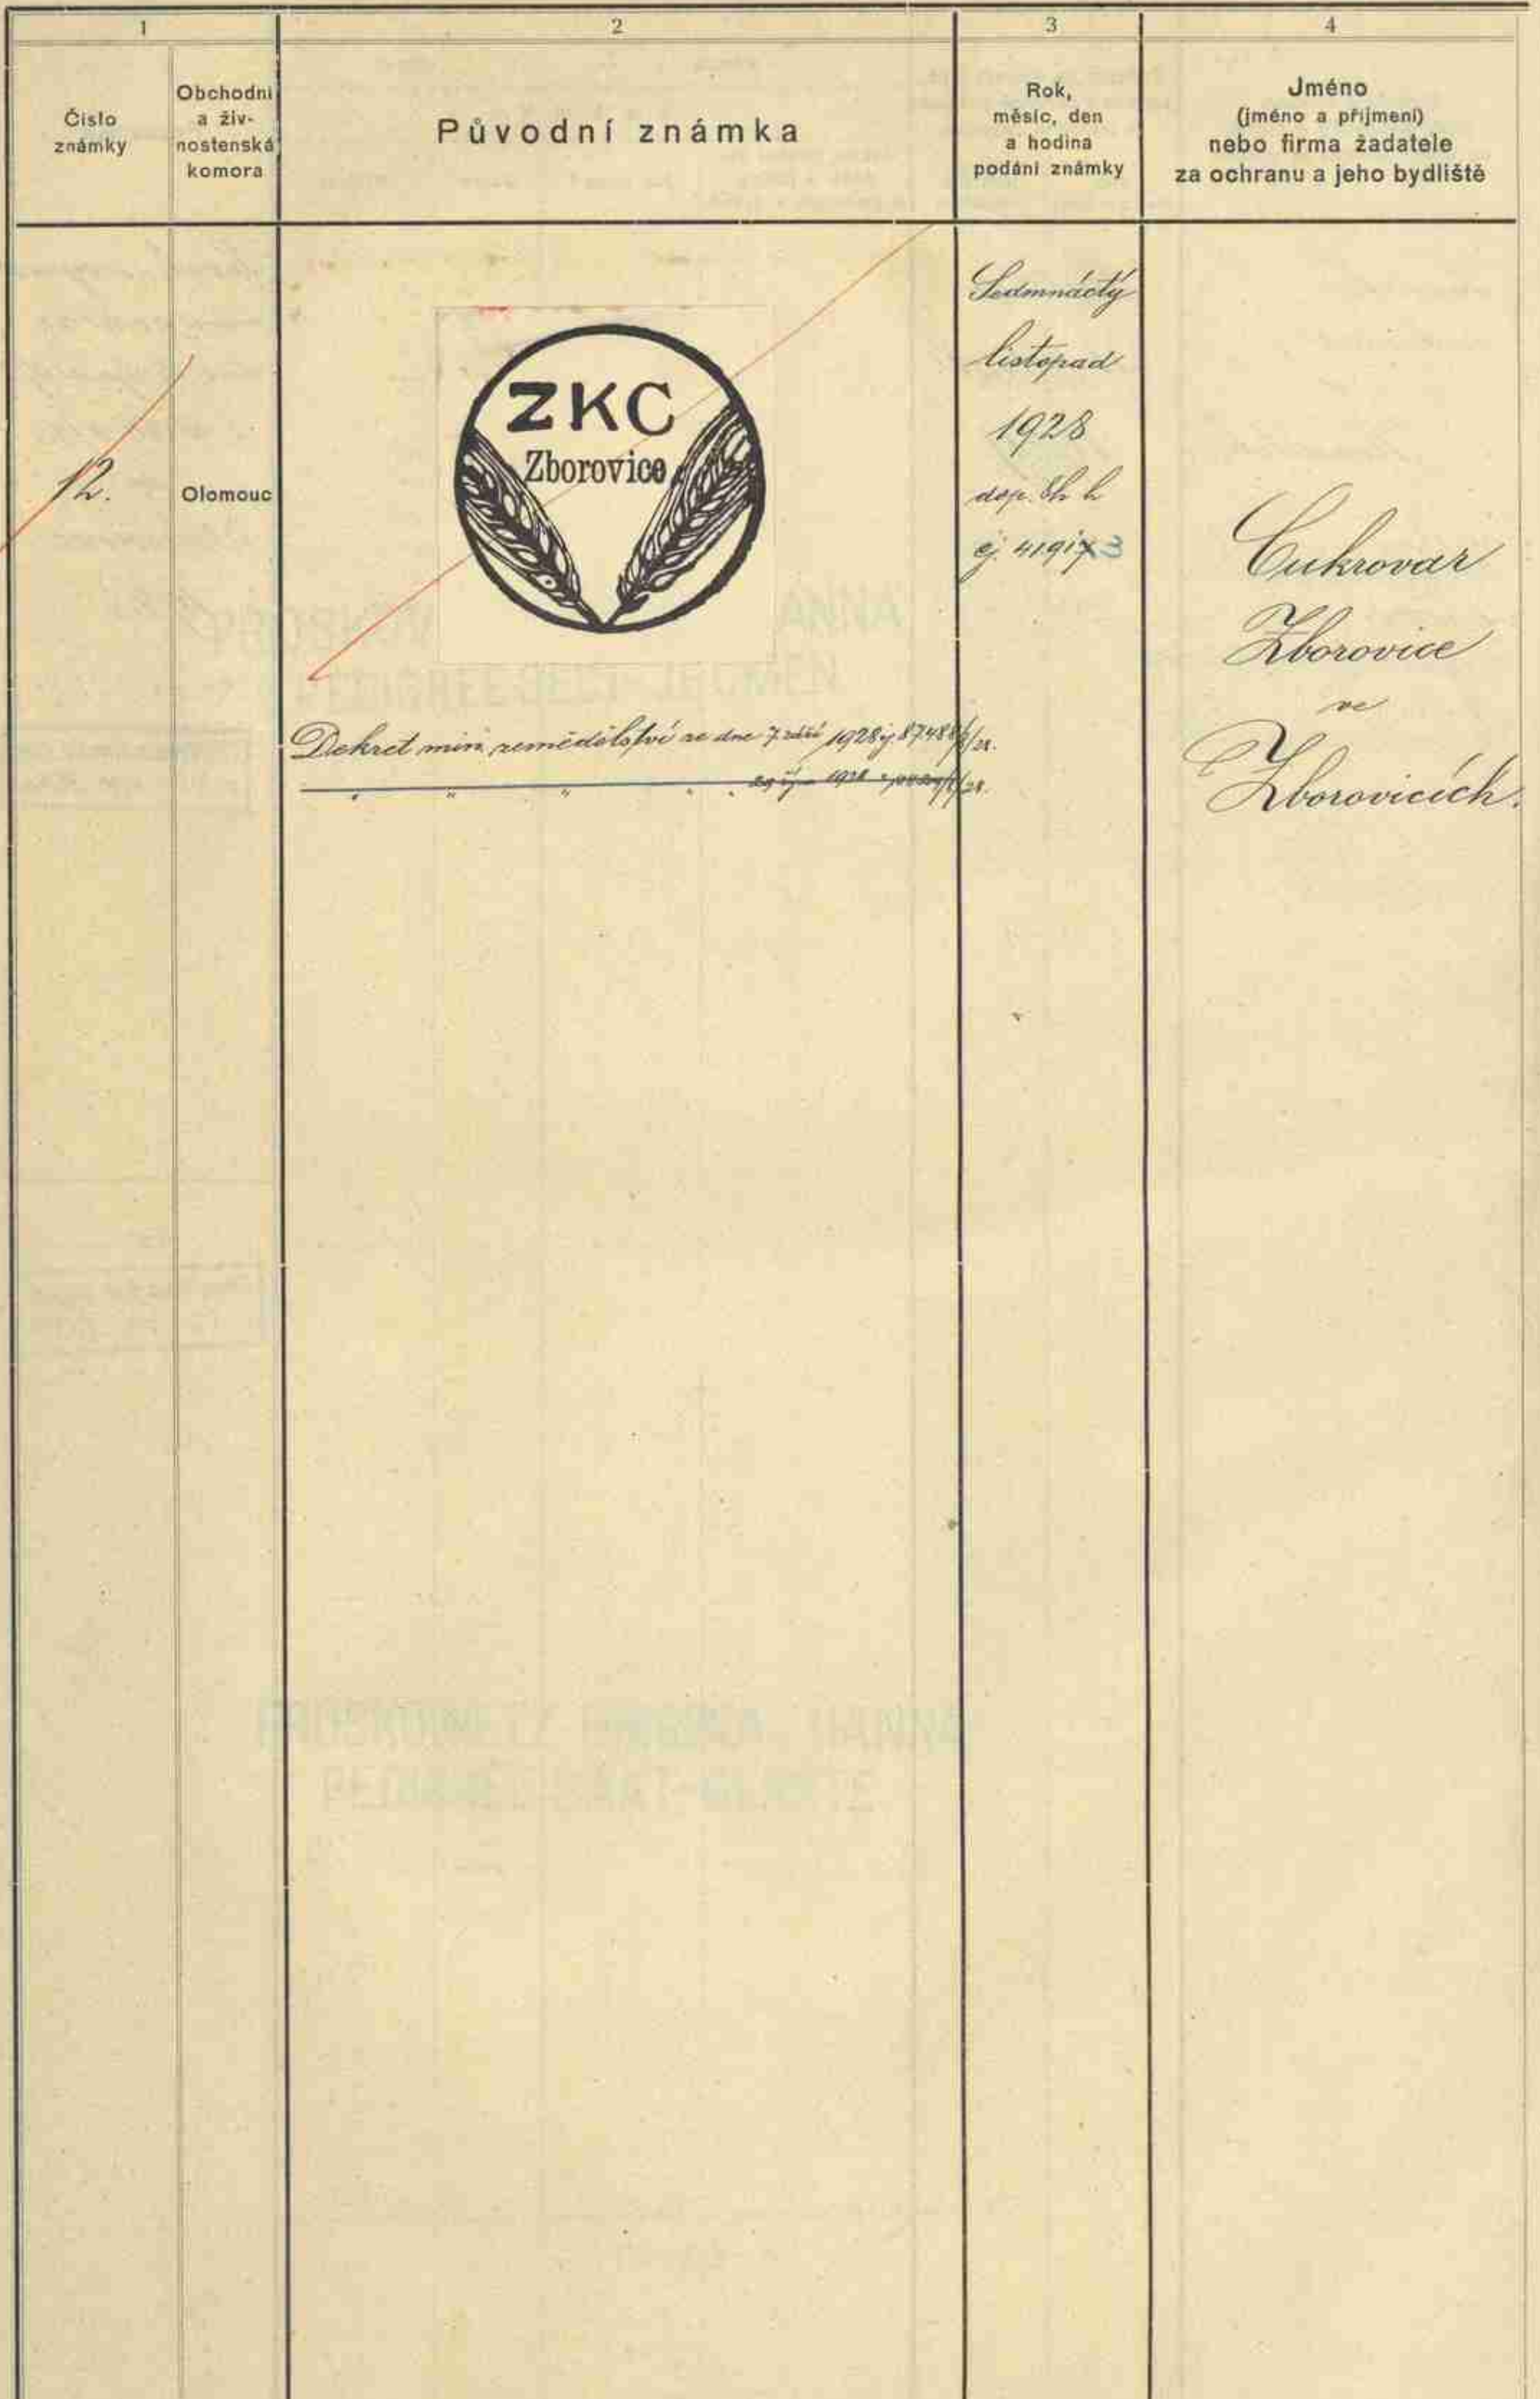 1
2
3
4
Číslo
známky
Obchodní
a živ-
nostenská
komora
Původní známka
Rok,
měsíc, den
a hodina
podání známky
Jméno
(jméno a příjmení)
nebo firma žadatele
za ochranu a jeho bydliště
12.
Olomouc
ZKC
Zborovice
Dekret min. zemědělství ze dne 7 září 1928
Sedmnáctý
listopad
1928
dop. 8h
Cukrovar
Zborovice
ve
Zborovicích.